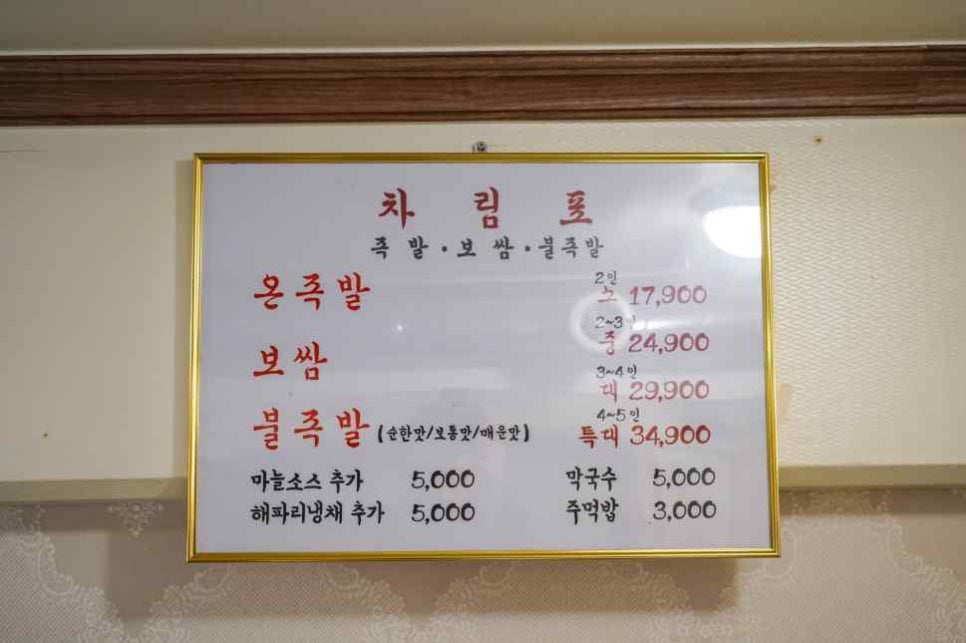 차림표
족발·보쌈·불족발
온족발
2인
소 17,900
2~3인
중 24,900
보쌈
3~4인
대 29,900
불족발 (순한맛/보통맛/매운맛)
4~5인
특대 34,900
마늘소스 추가 5,000 막국수 5,000
해파리냉채 추가 5,000 주먹밥 3,000